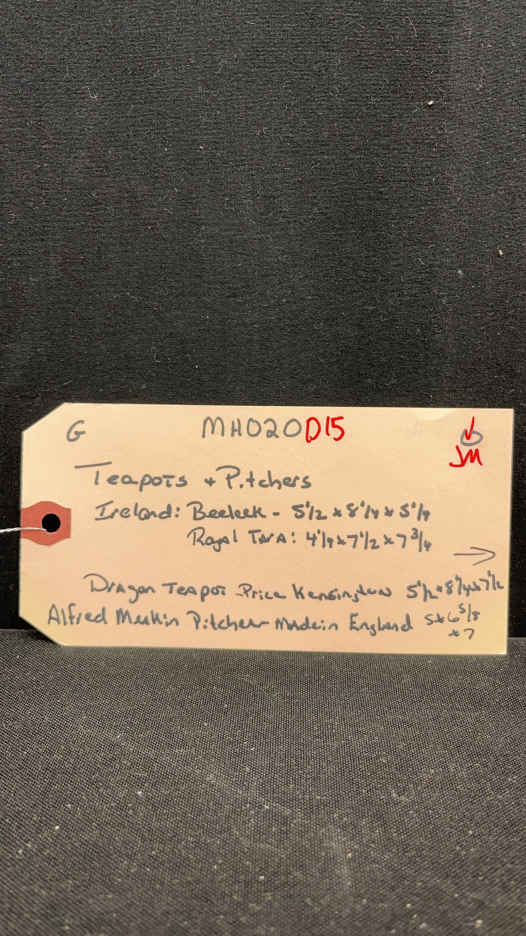 G MH020D15 JM
Teapots + Pitchers
Ireland: Beeleek - 5 1/2 x 8 1/4 x 5 1/4
Royal Tara: 4 1/4 x 7 1/2 x 7 3/4
→
Dragon Teapot Price Kensington 5 1/2 x 8 1/4 x 7 1/2
Alfred Meakin Pitcher Made in England 5 x 6 5/8
x 7